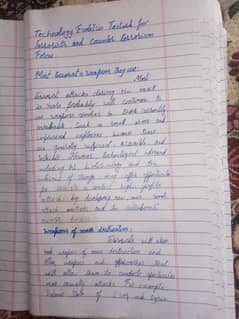 Technology Enable Tactics for
Terrorists and Counter terrorism
Force
Most terrorist weapons they use
Most
terrorist attacks during the next
in years probably will continue to
use weapons similar to those currently
available such as small arms and
improvised explosives because these
are generally sufficient, accessible, and
reliable. However technological advances
including
internet of things may offer opportunities
for terrorists to conduct high profile
attacks by developing new, more remote
attack methods and to collaborate
across borders
Weapons of mass destruction:
Terrorists will also
seek weapons of mass destruction and
other weapons and approaches that
will allow them to conduct spectacular
mass casualty attacks. For example
Islamic State of Iraq and Syria